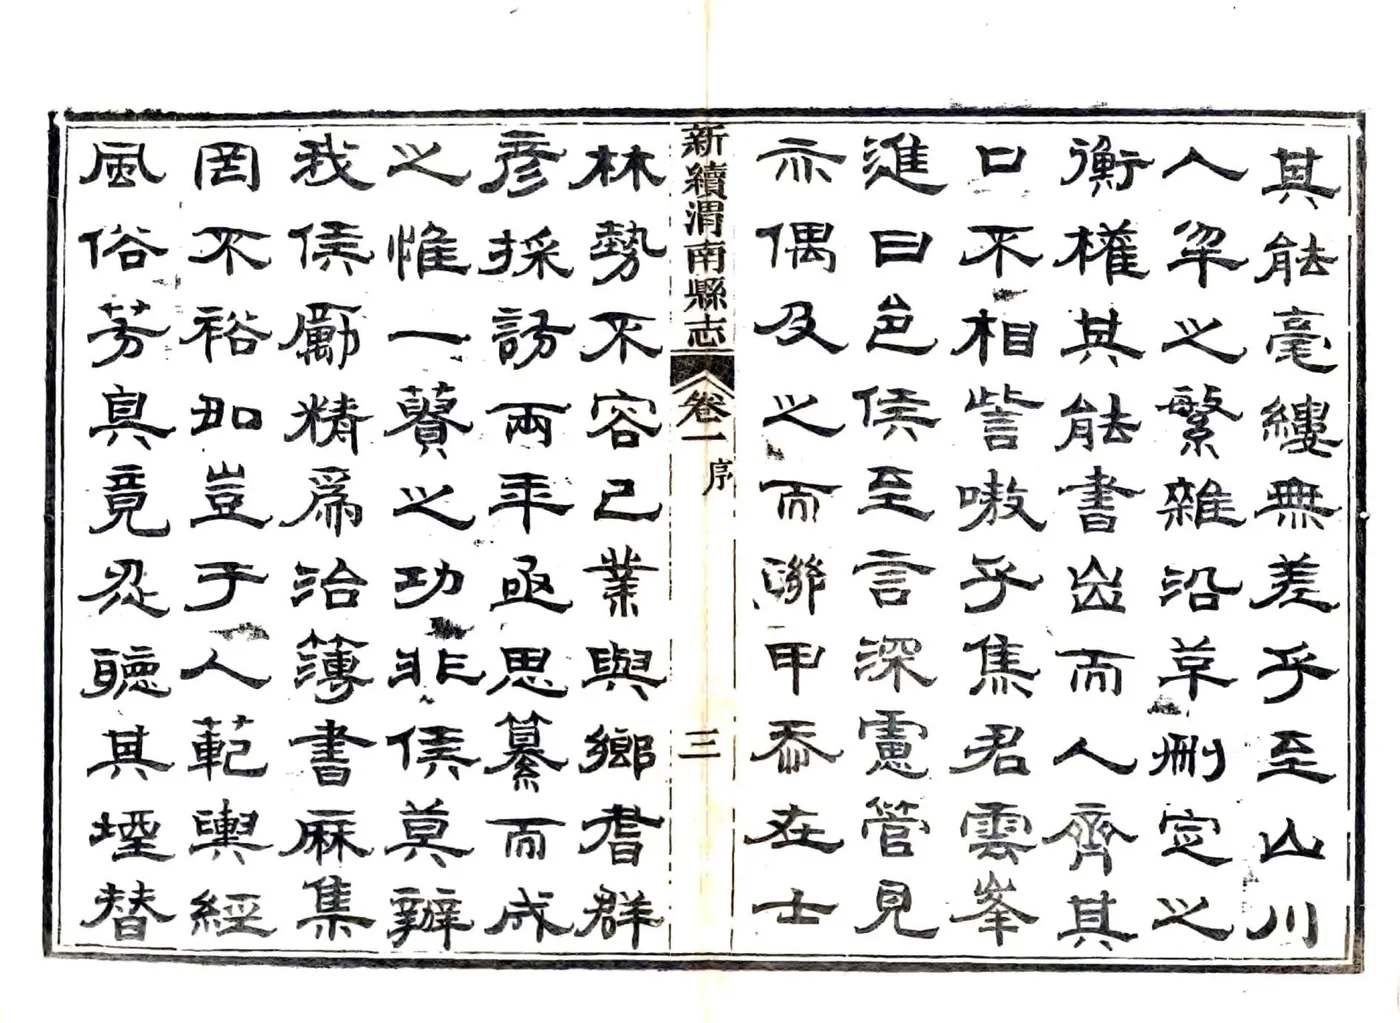 其能毫縷無差乎至山川
人之繁雜沿革刪定之
衡權其能書出而人齊其
口不相訾嗷乎焦君雲峯
進曰邑侯至言深慮管見
亦偶及之而聯甲忝在士
新續渭南縣志 卷一 序 三
林勢不容已業與鄉耆群
彥採訪兩年亟思纂而成
之惟一簣之功非侯莫辦
我侯勵精爲治簿書麻集
罔不裕如豈于人範輿經
風俗芳臭竟忍聽其堙替